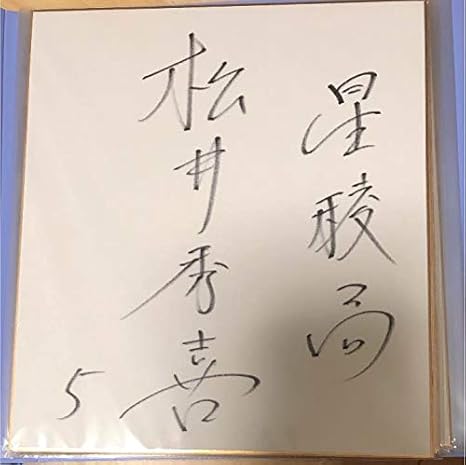 星稜高
松井秀喜
5